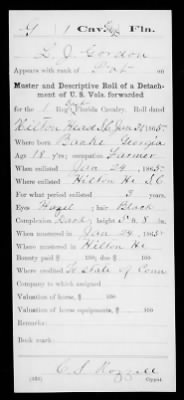 G 1 Cav. Fla.
L. J. Gordon
Appears with rank of Pvt on
Muster and Descriptive Roll of a Detach-
ment of U. S. Vols. forwarded
for the 1 Reg't Florida Cavalry. Roll dated
Hilton Head S C Jan 24, 1865.
Where born Georgia
Age 18 y'rs; occupation Farmer
When enlisted Jan 24, 1865.
Where enlisted Hilton He S C
For what period enlisted 3 years.
Eyes Hazel; hair Black
Complexion Dark; height 5 ft. 8 in.
When mustered in Jan 24, 1865.
Where mustered in Hilton He
Bounty paid $ 100; due $ 100
Where credited To State of Conn
Company to which assigned
Valuation of horse, $ 100
Valuation of horse equipments, $ 100
Remarks:
Book mark:
(339)
Copyist.